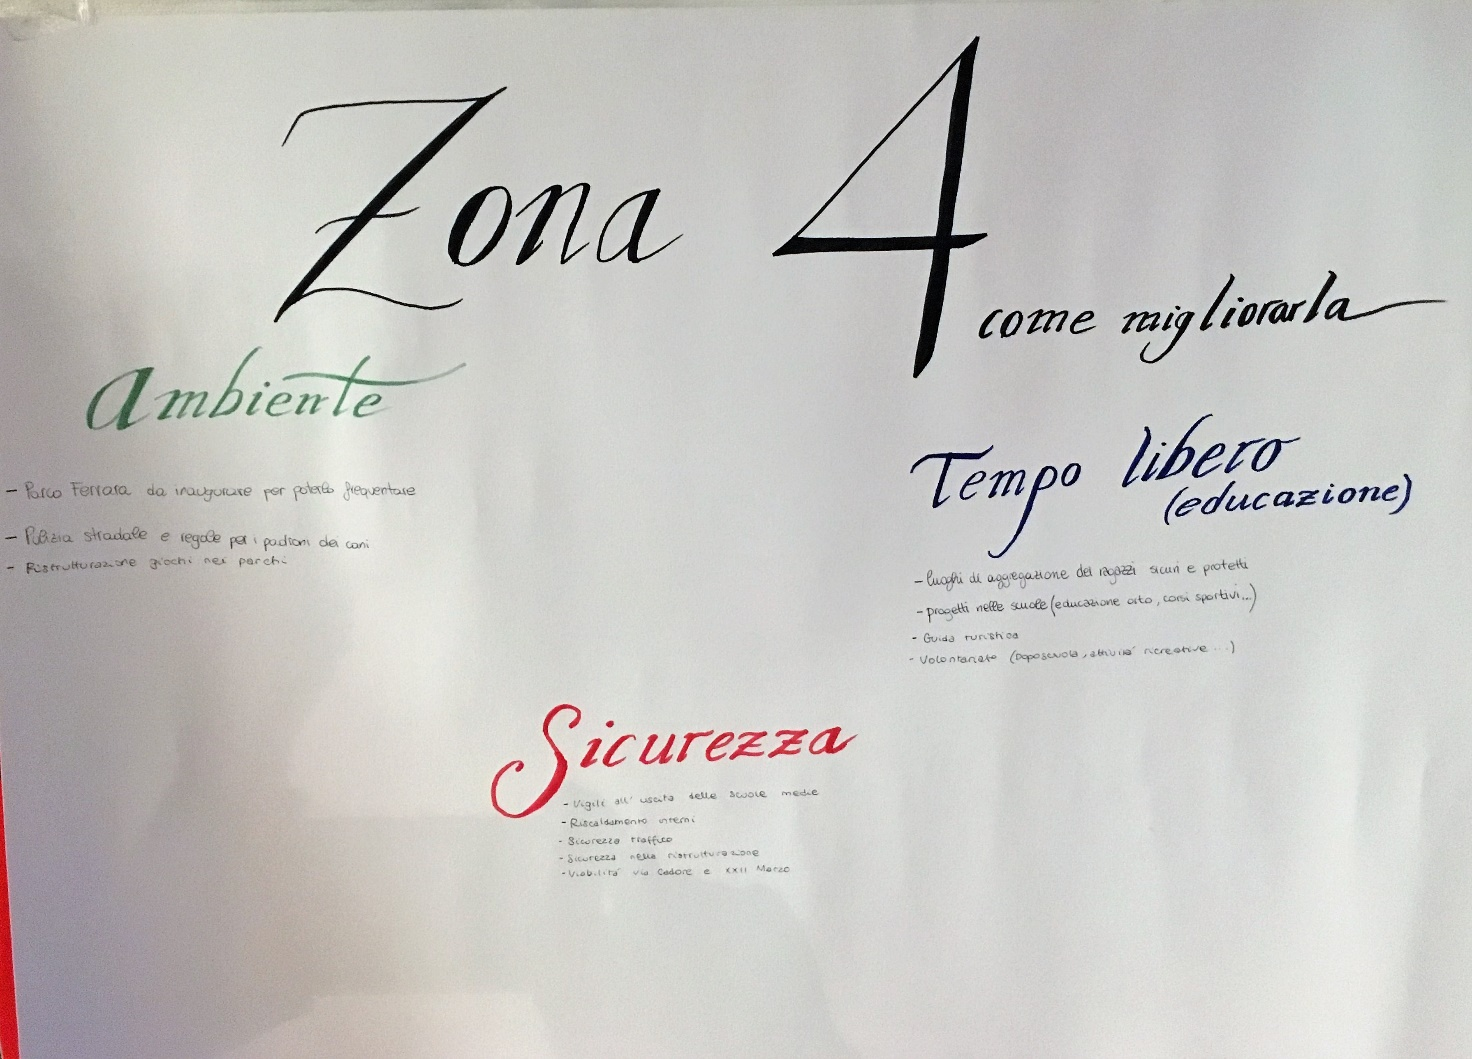 Zona 4
come migliorarla
Ambiente
- Parco Ferrara da inaugurare per poterlo frequentare
- Pulizia stradale e regole per i padroni dei cani
- Ristrutturazione giochi nei parchi
Tempo libero
(educazione)
- luoghi di aggregazione dei ragazzi sicuri e protetti
- progetti nelle scuole (educazione orto, corsi sportivi...)
- Guida turistica
- Volontariato (Doposcuola, attività ricreative ...)
Sicurezza
- Vigili all' uscita delle scuole medie
- Riscaldamento interni
- Sicurezza traffico
- Sicurezza nella ristrutturazione
- Viabilità via Cadore e XXII Marzo